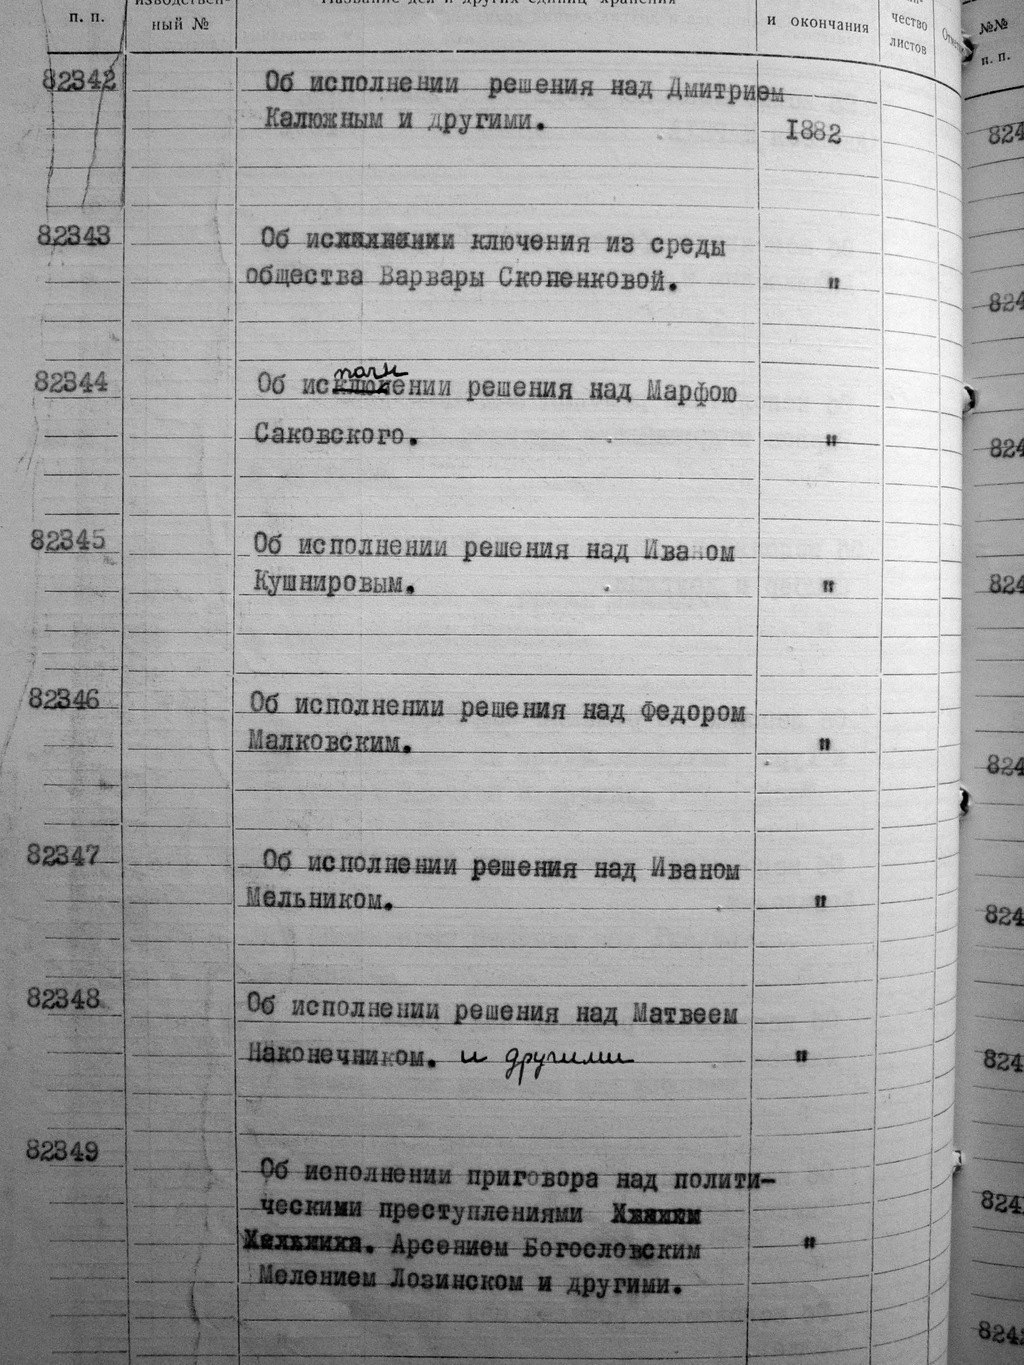 п. п.
ный №
и окончания
чество
листов
№№
п. п.
82342
Об исполнении решения над Дмитрием
Калюжным и другими.
I882
824
82343
Об ис ключения из среды
общества Варвары Скопенковой.
"
824
82344
пол
Об исключении решения над Марфою
Саковского.
"
824
82345
Об исполнении решения над Иваном
Кушнировым.
"
824
82346
Об исполнении решения над Федором
Малковским.
"
824
82347
Об исполнении решения над Иваном
Мельником.
"
824
82348
Об исполнении решения над Матвеем
Наконечником. и другими
"
824
82349
Об исполнении приговора над полити-
ческими преступлениями
Арсением Богословским
"
824
Мелением Лозинском и другими.
824